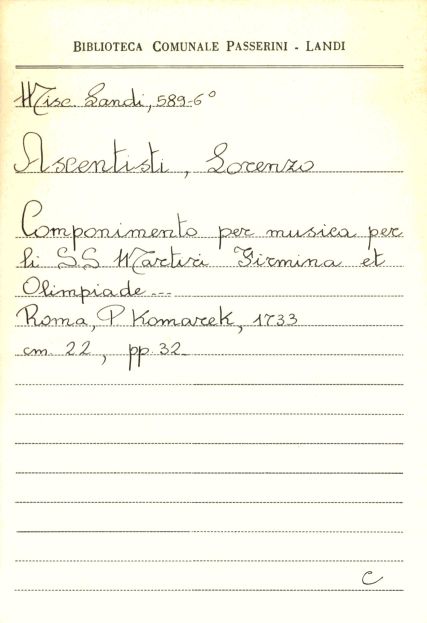 BIBLIOTECA COMUNALE PASSERINI - LANDI
Misc. Landi, 589-6°
Ascentisti, Lorenzo
Componimento per musica per
li SS Martiri Firmina et
Olimpiade...
Roma, P. Komarek, 1733
cm. 22, pp. 32
C